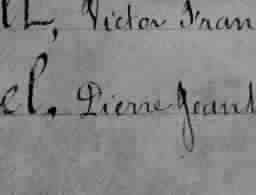 LL, Victor Fran
el, Pierre Jean